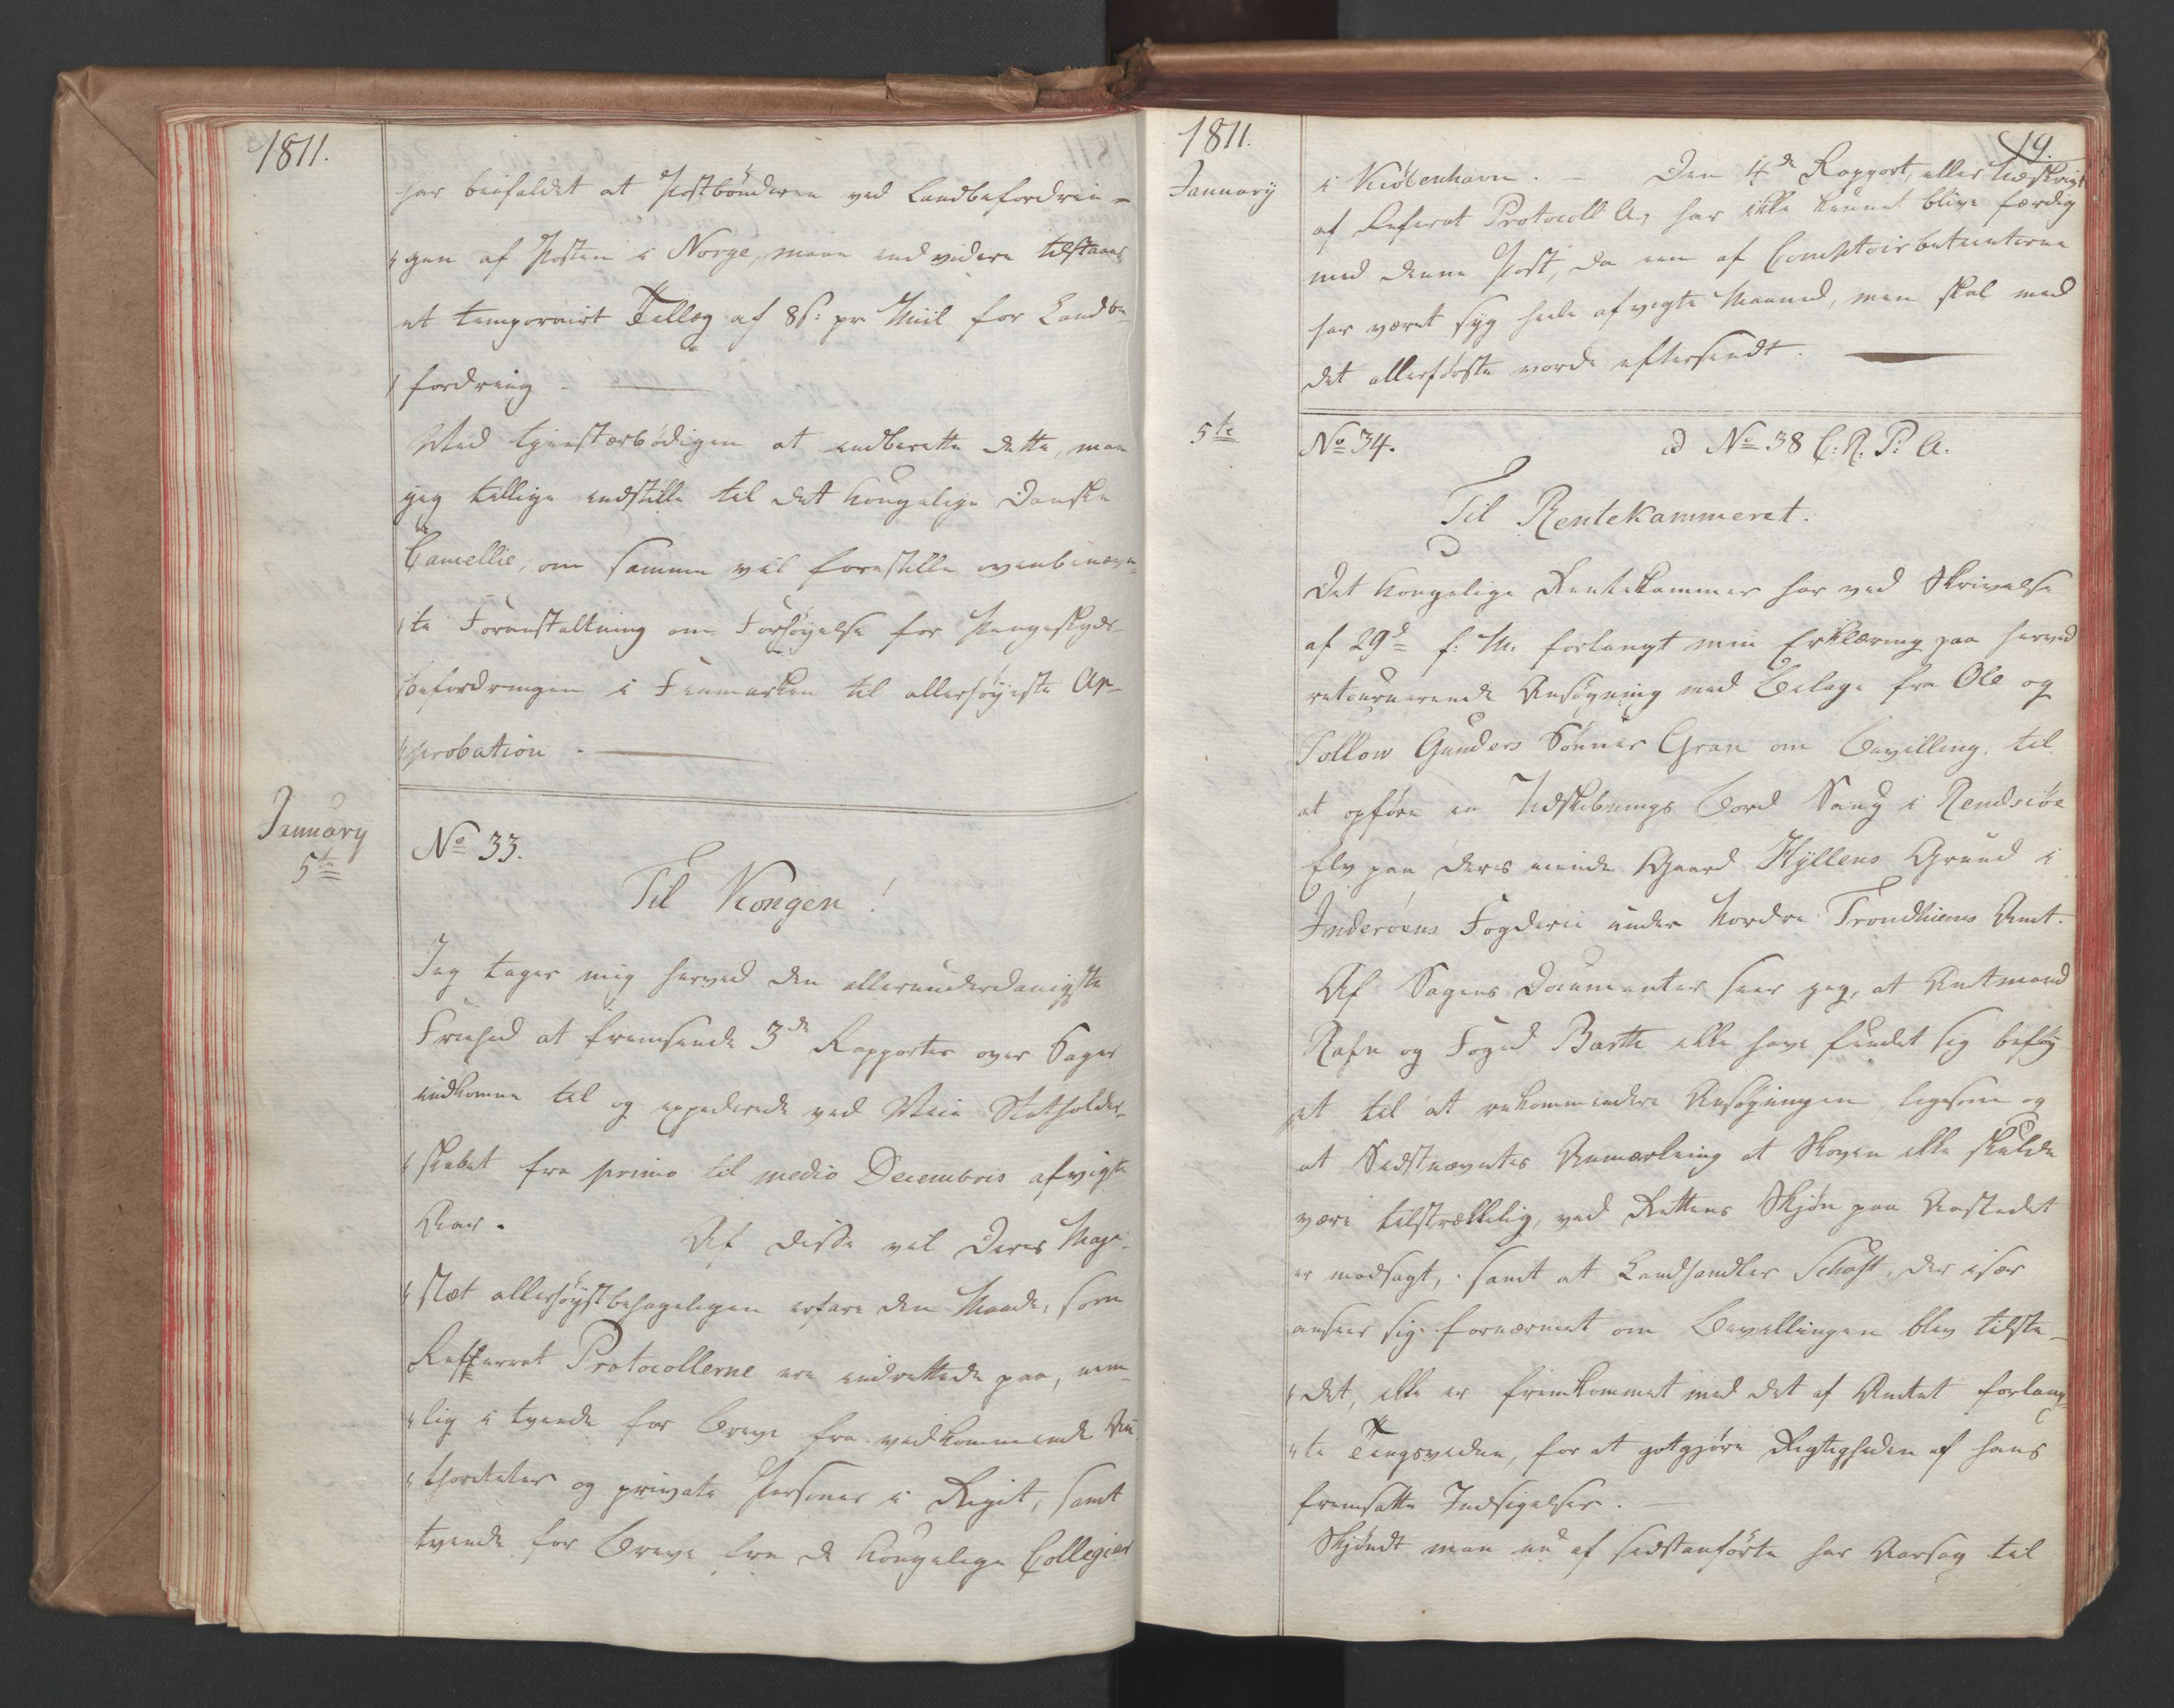 1811.
har bifaldet at Postbønderne ved Landbefordrin-
gen af Posten i Norge, maae endvidere tilstaaes
et temporairt Tillæg af 8 s: pr Miil for Landbe-
fordring. —
Ved tjenstærbødigen at indberette dette, maa
jeg tillige indstille til det Kongelige Danske
Cancellie, om samme vil forestille ovenbenævn-
te Foranstaltning om Forhøyelse for Pengeskyds-
befordringen i Finmarken til allerhøyeste Ap-
probation. —
January
5te
No 33.
Til Kongen!
Jeg tager mig herved den allerunderdanigste
Friehed at fremsende 3de Rapporter over Sager
indkomne til og expederede ved Vice Statholder-
skabet fra primo til medio Decembris afvigte
Aar.
Af disse vil Deres Maje-
stæt allerhøystbehageligen erfare den Maade, som
Refferrat Protocollerne ere indrettede paa, nem-
lig i tvende for Breve fra vedkommende Au-
thoriteter og private Personer i Riget, samt
tvende for Breve fra de Kongelige Collegier
1811.
January
19.
i Kiøbenhavn. — Den 4de Rapport, eller Udskrivt
af Referat Protocoll A, har ikke kunnet blive færdig
med denne Post, da een af Comptoirbetienterne
har været syg heele afvigte Maaned, men skal med
det allerførste vorde eftersendt. —
5te
No 34.
d No 38 C: R: P: A.
Til Rentekammeret.
Det Kongelige Rentekammer har ved Skrivelse
af 29d f: M. forlangt min Erklæring paa herved
retournerende Ansøgning med Bilage fra Ole og
Tollow Gunders Sønner Gran om Bevilling til
at opføre en Udskibnings Bord Saug i Rendsiøe
Elv paa deres eiende Gaard Kyllens Grund i
Inderøens Fogderie under Nordre Trondhiems Amt.
Af Sagens Documenter seer jeg, at Amtmand
Rafn og Foged Barth ikke have fundet sig beføy-
et til at rekommendere Ansøgningen ligesom og
at Sidstnævntes Anmærkning at Skoven ikke skulde
være tilstrækkelig, ved Rettens Skjøn paa Aastedet
er modsagt, samt at Landhandler Schaft, der især
anseer sig fornærmet om Bevillingen blev tilste-
det, ikke er fremkommet med det af Amtet forlang-
te Tingsvidne, for at gotgjøre Rigtigheden af hans
fremsatte Indsigelser. —
Skjøndt man nu af sidstanførte har Aarsag til